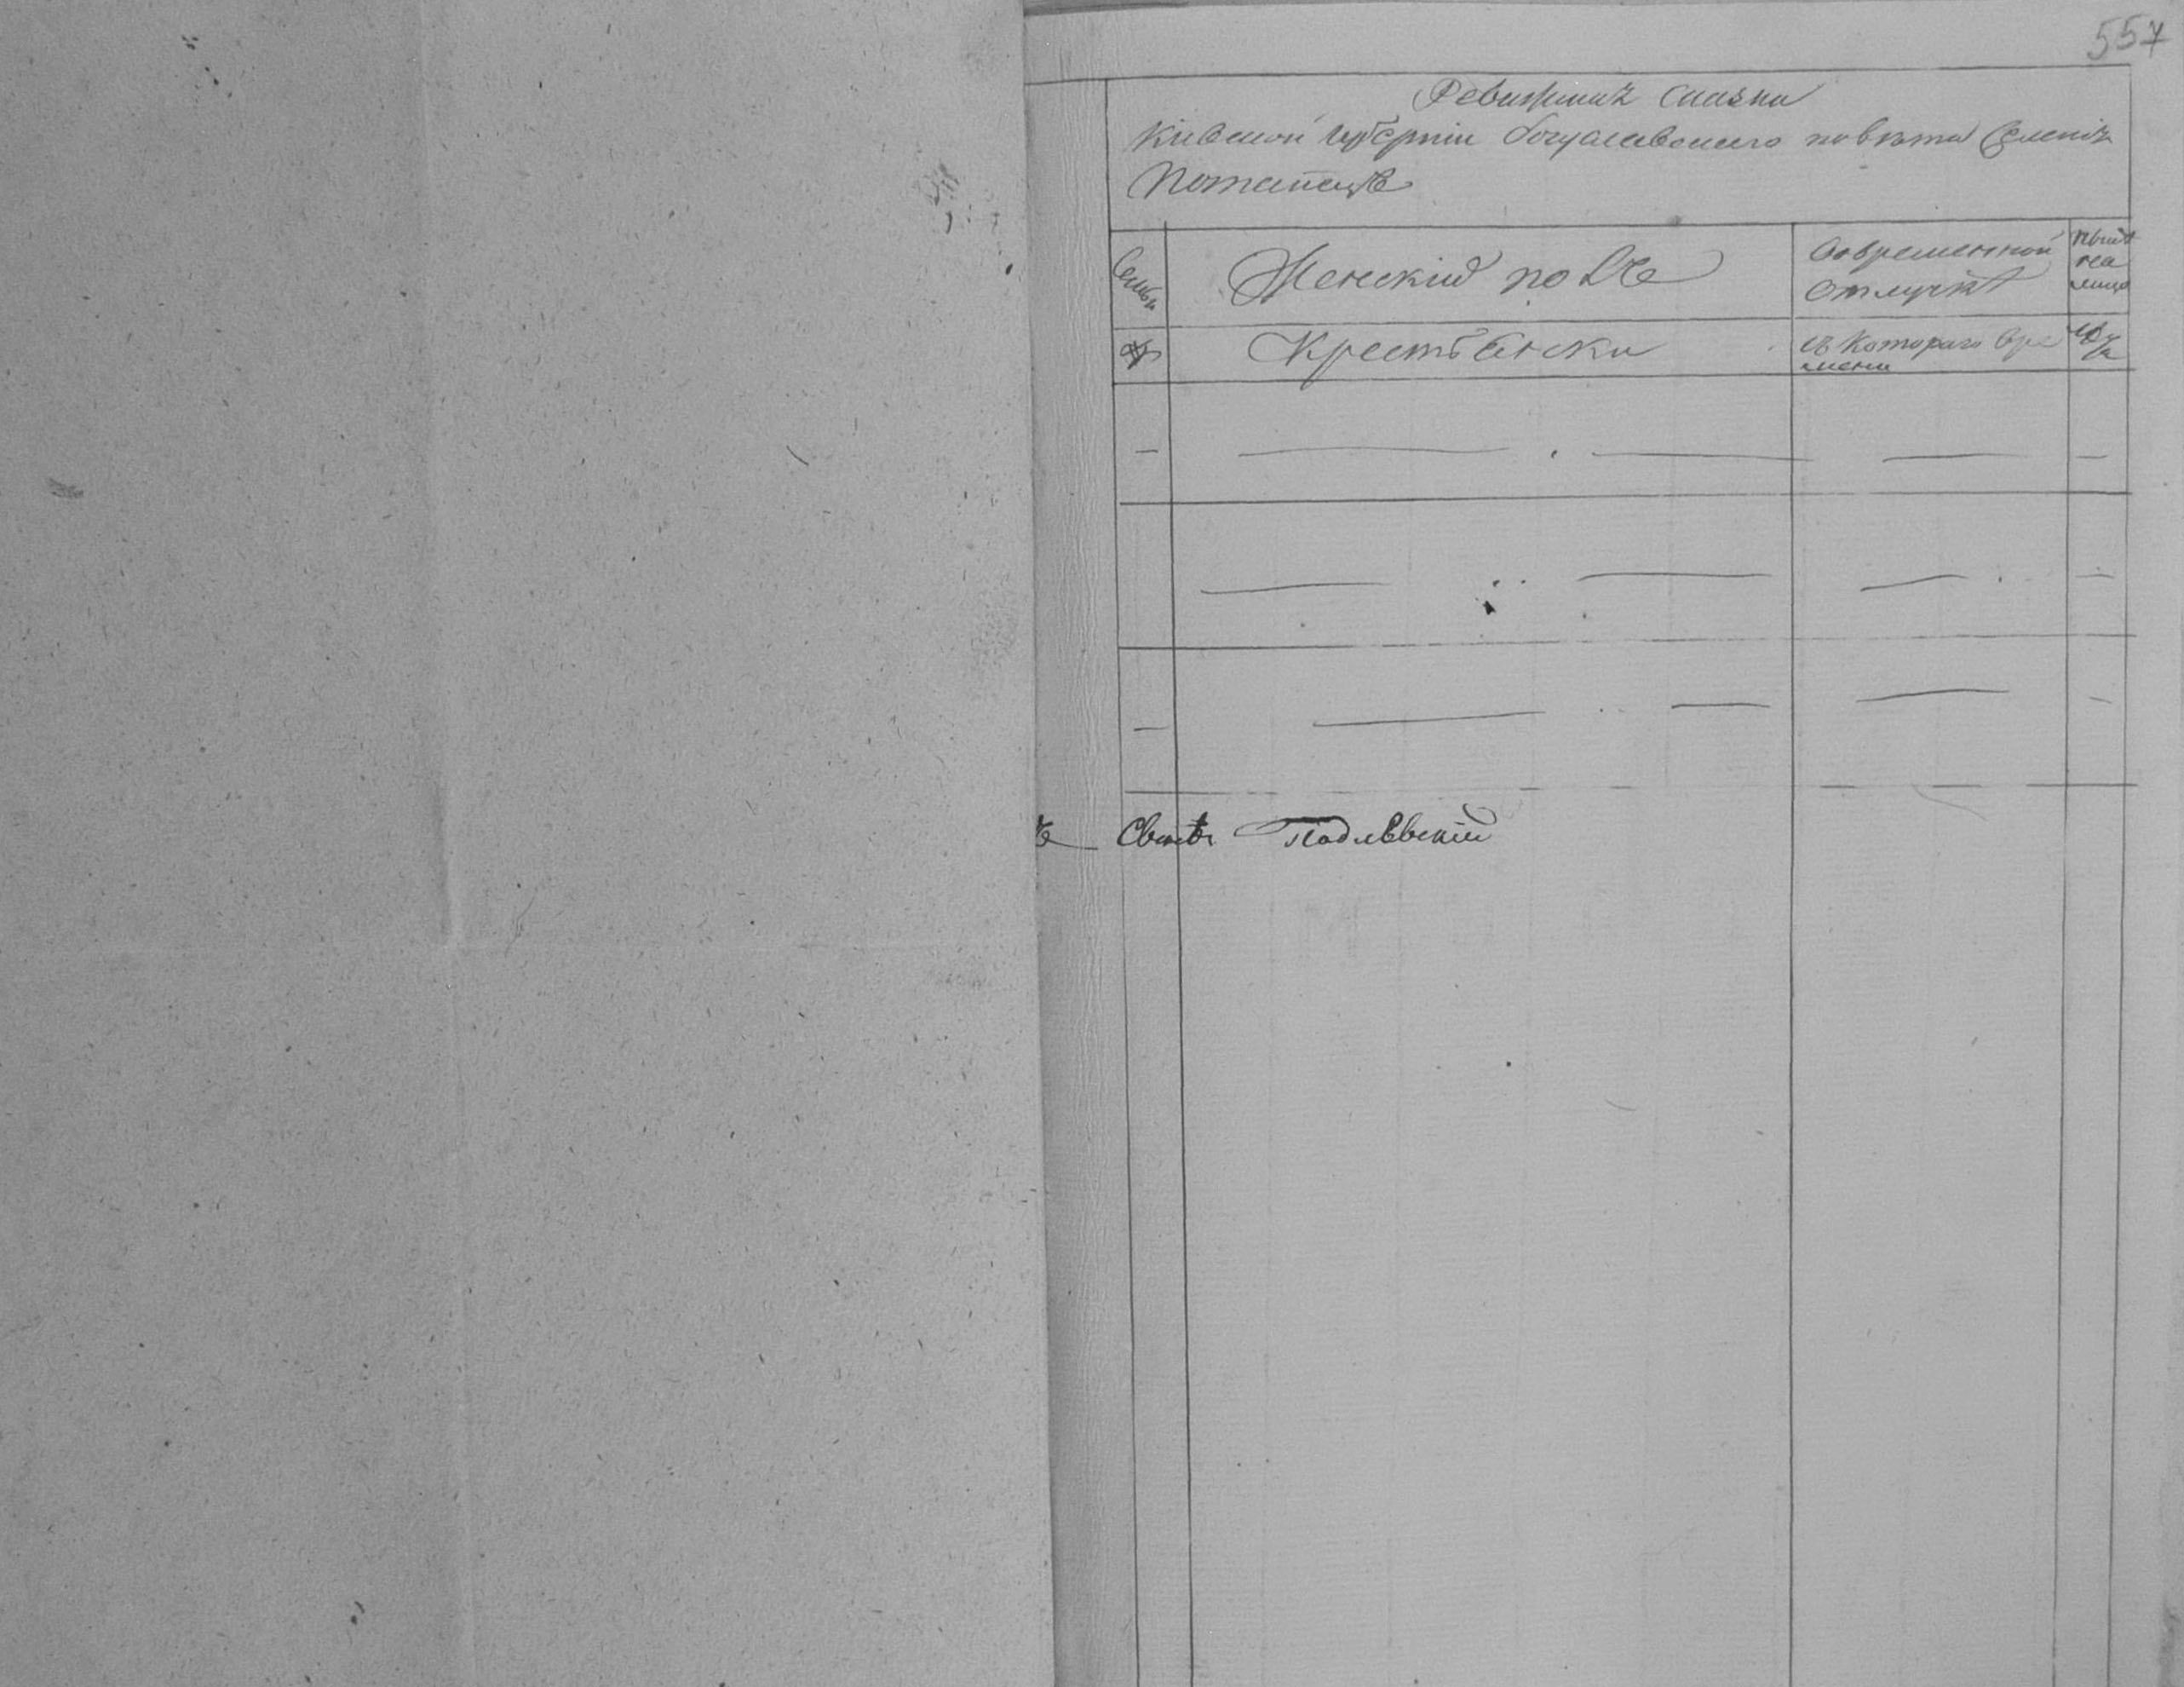 557
Ревизская сказка
Киевской губернии богуславского повѣта Селения
Потапецъ
Семьи
Женский полъ
Во временной
отлучкѣ
ныне
на
лицо
№
Крестьянски
съ Котораго вре
мени
Подлѣвский